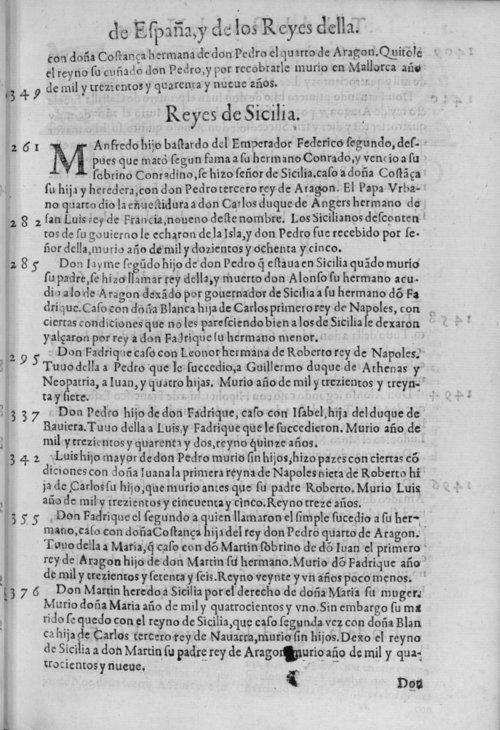 de España, y de los Reyes della.
con doña Costança hermana de don Pedro el quarto de Aragon. Quitole
el reyno su cuñado don Pedro, y por recobrarle murio en Mallorca año
1349 de mil y trezientos y quarenta y nueue años.
Reyes de Sicilia.
261 MAnfredo hijo bastardo del Emperador Federico segundo, des-
pues que matò segun fama a su hermano Conrado, y vencio a su
sobrino Conradino, se hizo señor de Sicilia. caso a doña Costãça
su hija y heredera, con don Pedro tercero rey de Aragon. El Papa Vrba-
no quarto dio la enuestidura a don Carlos duque de Angers hermano de
282 san Luis rey de Francia, noueno deste nombre. Los Sicilianos desconten
tos de su gouierno le echaron de la Isla, y don Pedro fue recebido por se-
ñor della, murio año de mil y dozientos y ochenta y cinco.
285 Don Iayme segũdo hijo de don Pedro q̃ estaua en Sicilia quãdo murio
su padre, se hizo llamar rey della, y muerto don Alonso su hermano acu-
dio a lo de Aragon dexãdo por gouernador de Sicilia a su hermano dõ Fa
drique. Caso con doña Blanca hija de Carlos primero rey de Napoles, con
ciertas condiciones que no les paresciendo bien a los de Sicilia le dexaron
y alçaron por rey a don Fadrique su hermano menor.
295 Don Fadrique caso con Leonor hermana de Roberto rey de Napoles.
Tuuo della a Pedro que le succedio, a Guillermo duque de Athenas y
Neopatria, a Iuan, y quatro hijas. Murio año de mil y trezientos y treyn-
ta y siete.
337 Don Pedro hijo de don Fadrique, caso con Isabel, hija del duque de
Bauiera. Tuuo della a Luis, y Fadrique que le succedieron. Murio año de
mil y trezientos y quarenta y dos, reyno quinze años.
342 Luis hijo mayor de don Pedro murio sin hijos, hizo pazes con ciertas cõ
diciones con doña Iuana la primera reyna de Napoles nieta de Roberto hi
ja de Carlos su hijo, que murio antes que su padre Roberto. Murio Luis
año de mil y trezientos y cincuenta y cinco. Reyno treze años.
355 Don Fadrique el segundo a quien llamaron el simple sucedio a su her-
mano, caso con doña Costança hija del rey don Pedro quarto de Aragon.
Tuuo della a Maria, q̃ caso con dõ Martin sobrino de dõ Iuan el primero
rey de Aragon hijo de don Martin su hermano. Murio dõ Fadrique año
de mil y trezientos y setenta y seis. Reyno veynte y vn años poco menos.
1376 Don Martin heredo a Sicilia por el derecho de doña Maria su muger.
Murio doña Maria año de mil y quatrocientos y vno. Sin embargo su ma
rido se quedo con el reyno de Sicilia, que caso segunda vez con doña Blan
ca hija de Carlos tercero rey de Nauarra, murio sin hijos. Dexo el reyno
de Sicilia a don Martin su padre rey de Aragon murio año de mil y qua-
trocientos y nueue.
Don